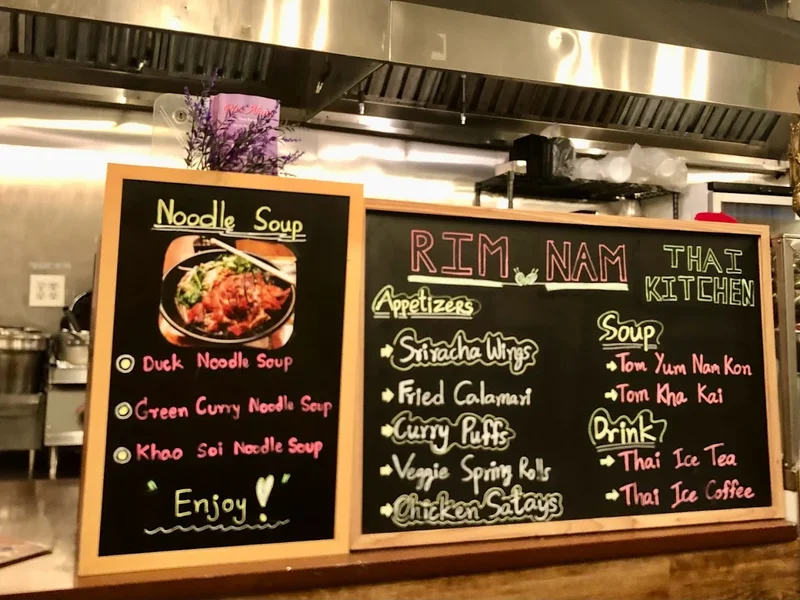 Noodle Soup
Duck Noodle Soup
Green Curry Noodle Soup
Khao Soi Noodle Soup
"Enjoy!"
RIM NAM
THAI
KITCHEN
Appetizers
Sriracha Wings
Fried Calamari
Curry Puffs
Veggie Spring Rolls
Chicken Satays
Soup
Tom Yum Nam Kon
Tom Kha Kai
Drink
Thai Ice Tea
Thai Ice Coffee